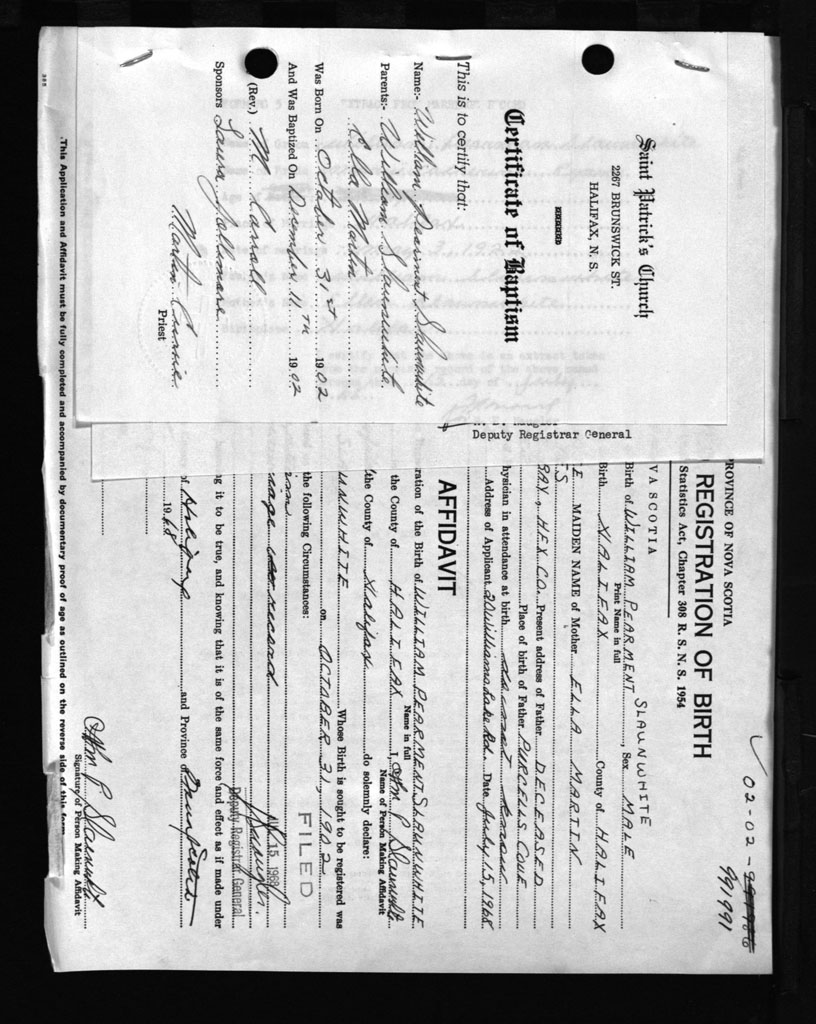 Saint Patrick's Church
2267 BRUNSWICK ST.
HALIFAX, N. S.
Certificate of Baptism
This is to certify that:
Name:- William Pearment Slaunwhite
Parents:- William Slaunwhite
Ella Martin
Was Born On October 31st 1902
And Was Baptized On December 11th 1902
(Rev.) M Carroll
Sponsors Laura
Martin Currie
Priest
Deputy Registrar General
02-02-
991991
PROVINCE OF NOVA SCOTIA
REGISTRATION OF BIRTH
Statistics Act, Chapter 308 R. S. N. S. 1954
VA SCOTIA
Birth of WILLIAM PEARMENT SLAUNWHITE, Sex MALE
Print Name in full
Birth HALIFAX County of HALIFAX
E MAIDEN NAME of Mother ELLA MARTIN
ES
BAY, HFX CO. Present address of Father DECEASED
Place of birth of Father PURCELLS COVE
hysician in attendance at birth do not know
Address of Applicant 20 Williams Lake Rd. Date July 15, 1968
AFFIDAVIT
ration of the Birth of WILLIAM PEARMENT SLAUNWHITE
Name in full
the County of HALIFAX I, Wm P Slaunwhite
Name of Person Making Affidavit
the County of Halifax do solemnly declare:
UNWHITE Whose Birth is sought to be registered was
on OCTOBER 31, 1902
the following Circumstances:
FILED
record
15 1968
Deputy Registrar General
ng it to be true, and knowing that it is of the same force and effect as if made under
of and Province
1968
Wm P Slaunwhite
Signature of Person Making Affidavit
This Application and Affidavit must be fully completed and accompanied by documentary proof of age as outlined on the reverse side of this form